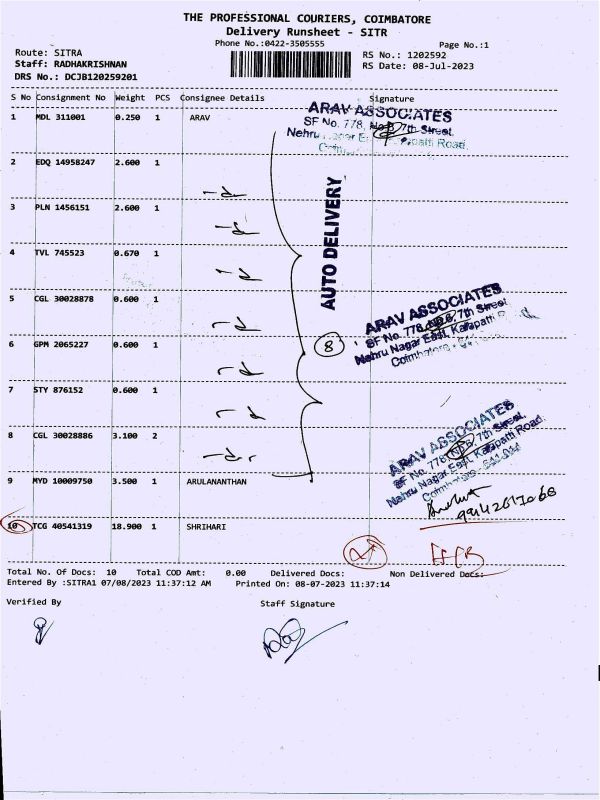 THE PROFESSIONAL COURIERS, COIMBATORE
Delivery Runsheet - SITR
Phone No.:0422-3505555
Page No.:1
Route: SITRA
RS No.: 1202592
Staff: RADHAKRISHNAN
RS Date: 08-Jul-2023
DRS No.: DCJB120259201
S No Consignment No Weight PCS Consignee Details Signature
1 MDL 311001 0.250 1 ARAV
ARAV ASSOCIATES
SF No. 778, No.8, 7th Street,
Nehru Nagar East, Kalapatti Road,
2 EDQ 14958247 2.600 1
3 PLN 1456151 2.600 1
AUTO DELIVERY
4 TVL 745523 0.670 1
5 CGL 30028878 0.600 1
ARAV ASSOCIATES
SF No. 778, No.8, 7th Street
Nehru Nagar East, Kalapatti
Coimbatore
6 GPM 2065227 0.600 1
8
7 STY 876152 0.600 1
8 CGL 30028886 3.100 2
ARAV ASSOCIATES
SF No. 778, No.8, 7th Street,
Nehru Nagar East, Kalapatti Road,
Coimbatore - 641 014
9 MYD 10009750 3.500 1 ARULANANTHAN
10 TCG 40541319 18.900 1 SHRIHARI
Total No. Of Docs: 10 Total COD Amt: 0.00 Delivered Docs: Non Delivered Docs:
Entered By :SITRA1 07/08/2023 11:37:12 AM Printed On: 08-07-2023 11:37:14
Verified By Staff Signature